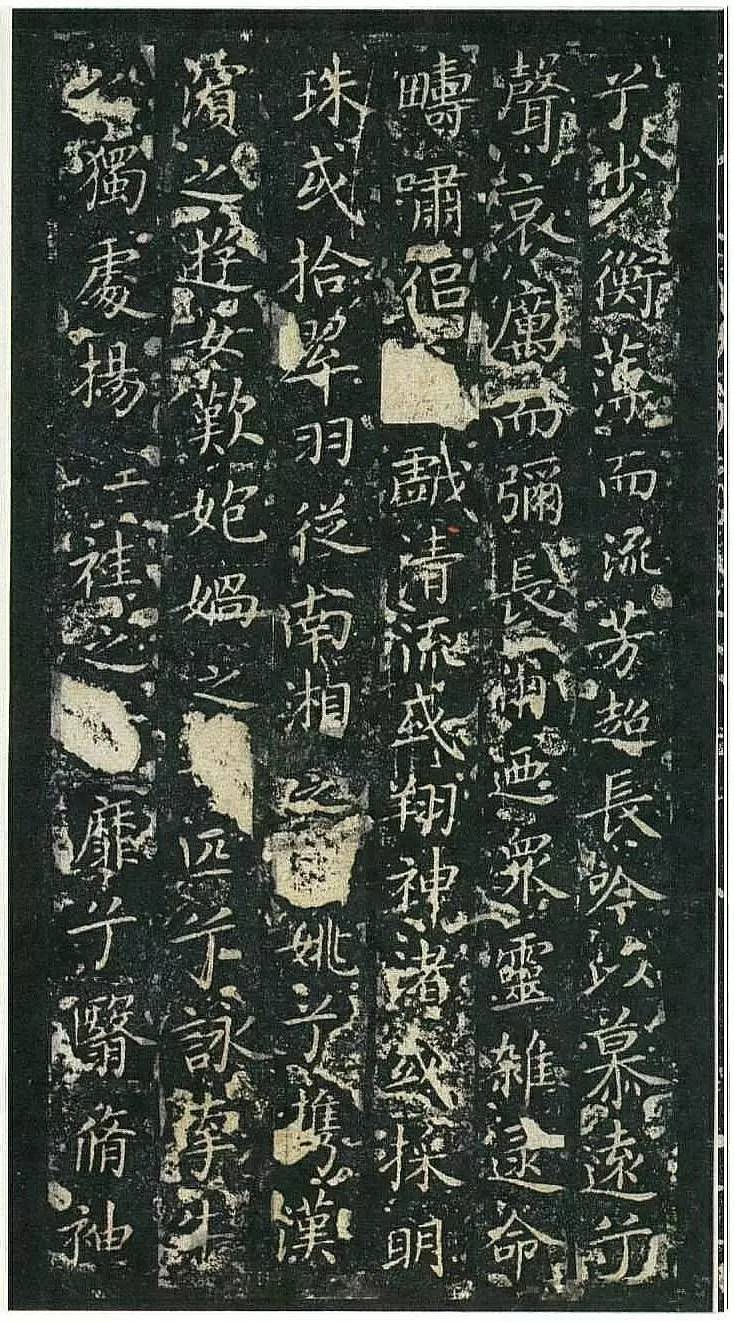 兮步衡薄而流芳超長吟以慕遠兮
聲哀厲而彌長爾迺衆靈雜遝命
疇嘯侣戲清流或翔神渚或採明
珠或拾翠羽從南湘之姚兮攜漢
濱之遊女歎媧之匹兮詠牽牛
之獨處揚袿之靡兮翳脩袖